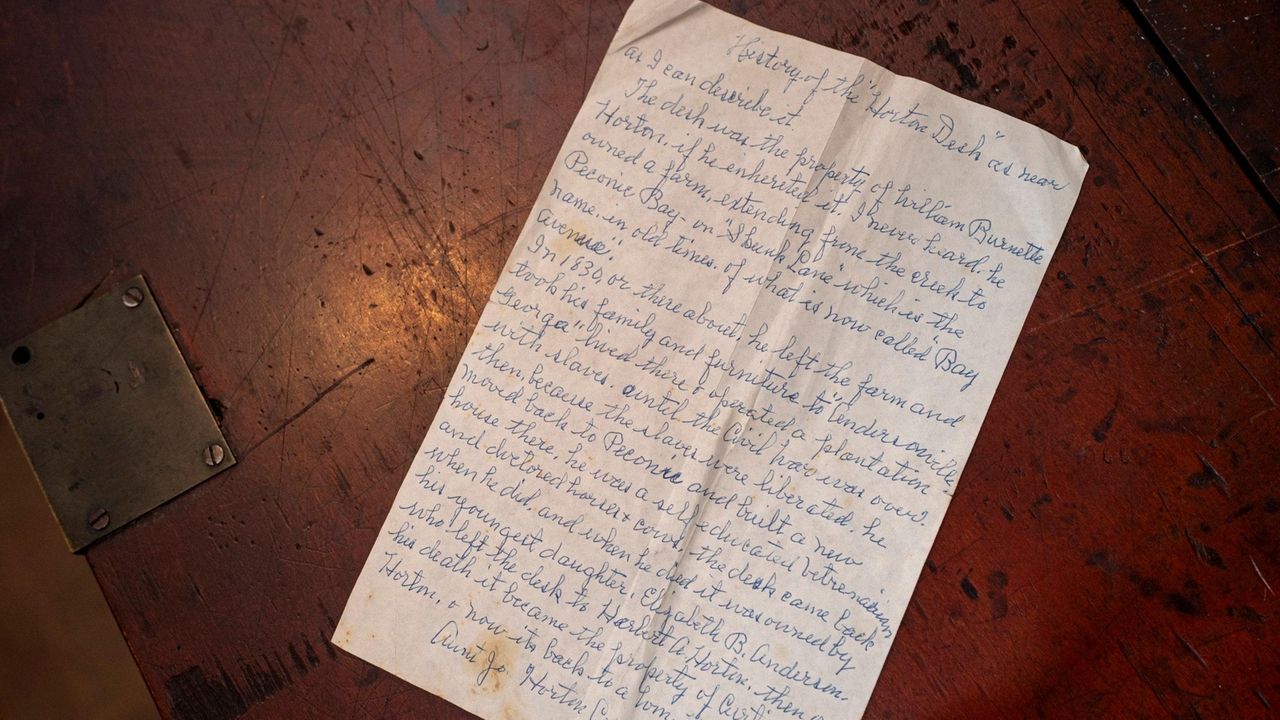 History of the "Horton Desk" as near
as I can describe it.
The desk was the property of William Burnette
Horton, if he enherited it, I never heard, he
owned a farm, extending from the creek to
Peconic Bay- on "Skunk Lane" which is the
name, in old times. of what is now called "Bay
avenue".
In 1830 or there about, he left the farm and
took his family and furniture to "Andersonville
Georga" lived there & operated a plantation
with slaves. auntil the Civil war was over.
then, because the slaves were liberated, he
moved back to Peconic and built a new
house there, he was a self educated Vetrenarian
and doctored horses & cows, the desk came back
when he did, and when he died it was owned by
his youngest daughter, Elizabeth B. Anderson-
who left the desk to Harbert A Horton, then on
his death it became the property of
Horton, & now its back to a
Aunt Jo Horton